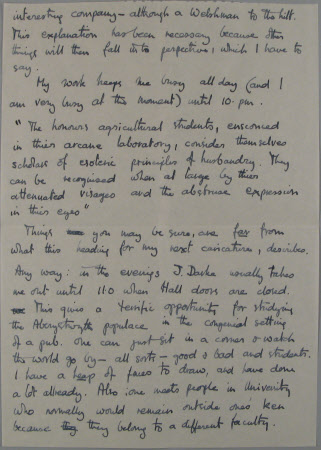 interesting company - although a Welshman to the hilt.
This explanation has been necessary because other
things will then fall into perspective, which I have to
say.
My work keeps me busy all day (and I
am very busy at the moment) until 10. pm.
"The honours agricultural students, ensconced
in their arcane laboratory, consider themselves
scholars of esoteric principles of husbandry. They
can be recognised when at large by their
attenuated visages and the abstruse expression
in their eyes"
Things you may be sure, are far from
what this heading for my next caricature, describes.
Any way: in the evenings J. usually takes
me out until 11.0 when Hall doors are closed.
This gives a terrific opportunity for studying
the Aberystwyth populace in the congenial setting
of a pub. One can just sit in a corner & watch
the world go by - all sorts - good & bad and students.
I have a heap of faces to draw, and have done
a lot already. Also: one meets people in University
who normally would remain outside one's ken
because they belong to a different faculty.